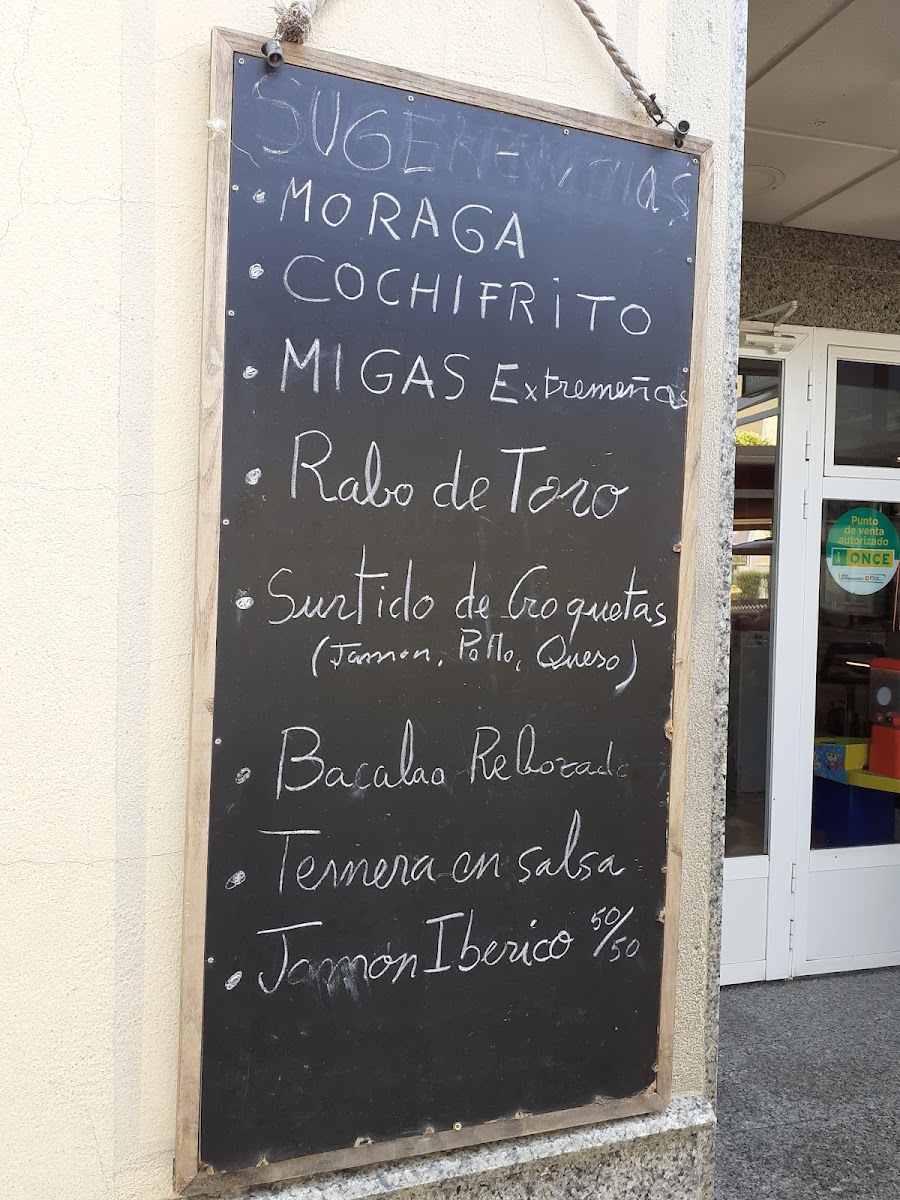 SUGERENCIAS
• MORAGA
• COCHIFRITO
• MIGAS Extremeñas
• Rabo de Toro
• Surtido de Croquetas
(Jamon, Pollo, Queso)
• Bacalao Rebozado
• Ternera en salsa
• Jamón Iberico 50/50
Punto
de venta
autorizado
ONCE